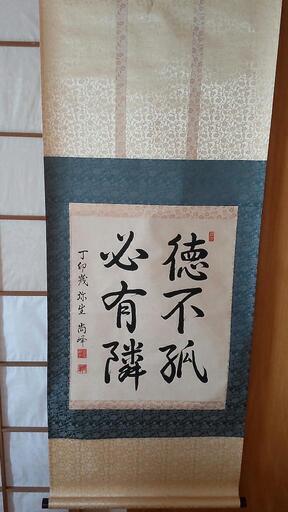 徳不孤
必有隣
丁卯歳 弥生 尚峰